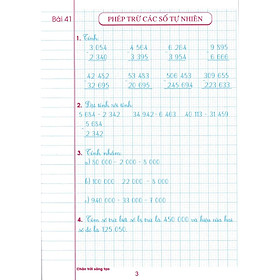 Bài 41
PHÉP TRỪ CÁC SỐ TỰ NHIÊN
1. Tính
3 054 4 564 6 264 9 595
2 340 3 395 3 954 6 666
42 452 53 453 506 453 309 655
32 695 20 695 245 694 223 633
2. Đặt tính và tính
5 654 - 2 342 34 942 - 6 463 40 113 - 31 459
5 654
2 342
3. Tính nhẩm
a) 50 000 - 2 000 - 5 000
b) 100 000 - 22 000 - 5 000
c) 940 000 - 33 000 - 7 000
4. Tìm số trừ biết số bị trừ là 450 000 và hiệu của hai
số đó là 125 050.
Chân trời sáng tạo
3